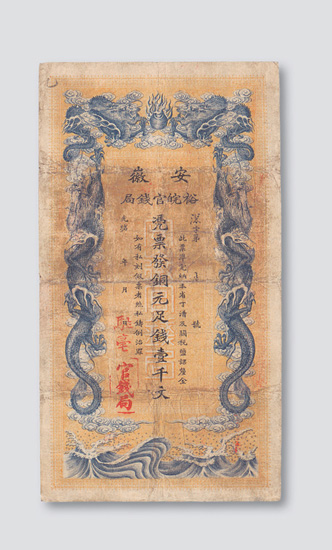 安徽
裕皖官錢局
深字第 號
此票準完納本省丁漕及關稅鹽課釐金
憑票發銅元足錢壹千文
如有私刻假票者照私鑄例治罪
光緒 年 月
官錢局